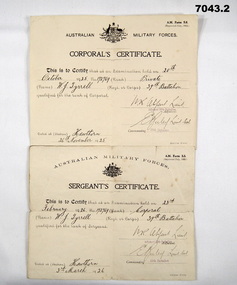 7043.2
A.M. Form
AUSTRALIAN MILITARY FORCES.
CORPORAL'S CERTIFICATE.
This is to Certify that at an Examination held on 20th
October 1935 No. (Rank) Private
(Name) W J Tyrrell (Regt. or Corps) 39th Battalion
qualified for the rank of Corporal.
Place of Hawthorn
26th November 1935
A.M. Form
AUSTRALIAN MILITARY FORCES.
SERGEANT'S CERTIFICATE.
This is to Certify that at an Examination held on 23rd
February 1936 No. (Rank) Corporal
(Name) W J Tyrrell (Regt. or Corps) 39th Battalion
qualified for the rank of Sergeant.
Hawthorn
3rd March 1936